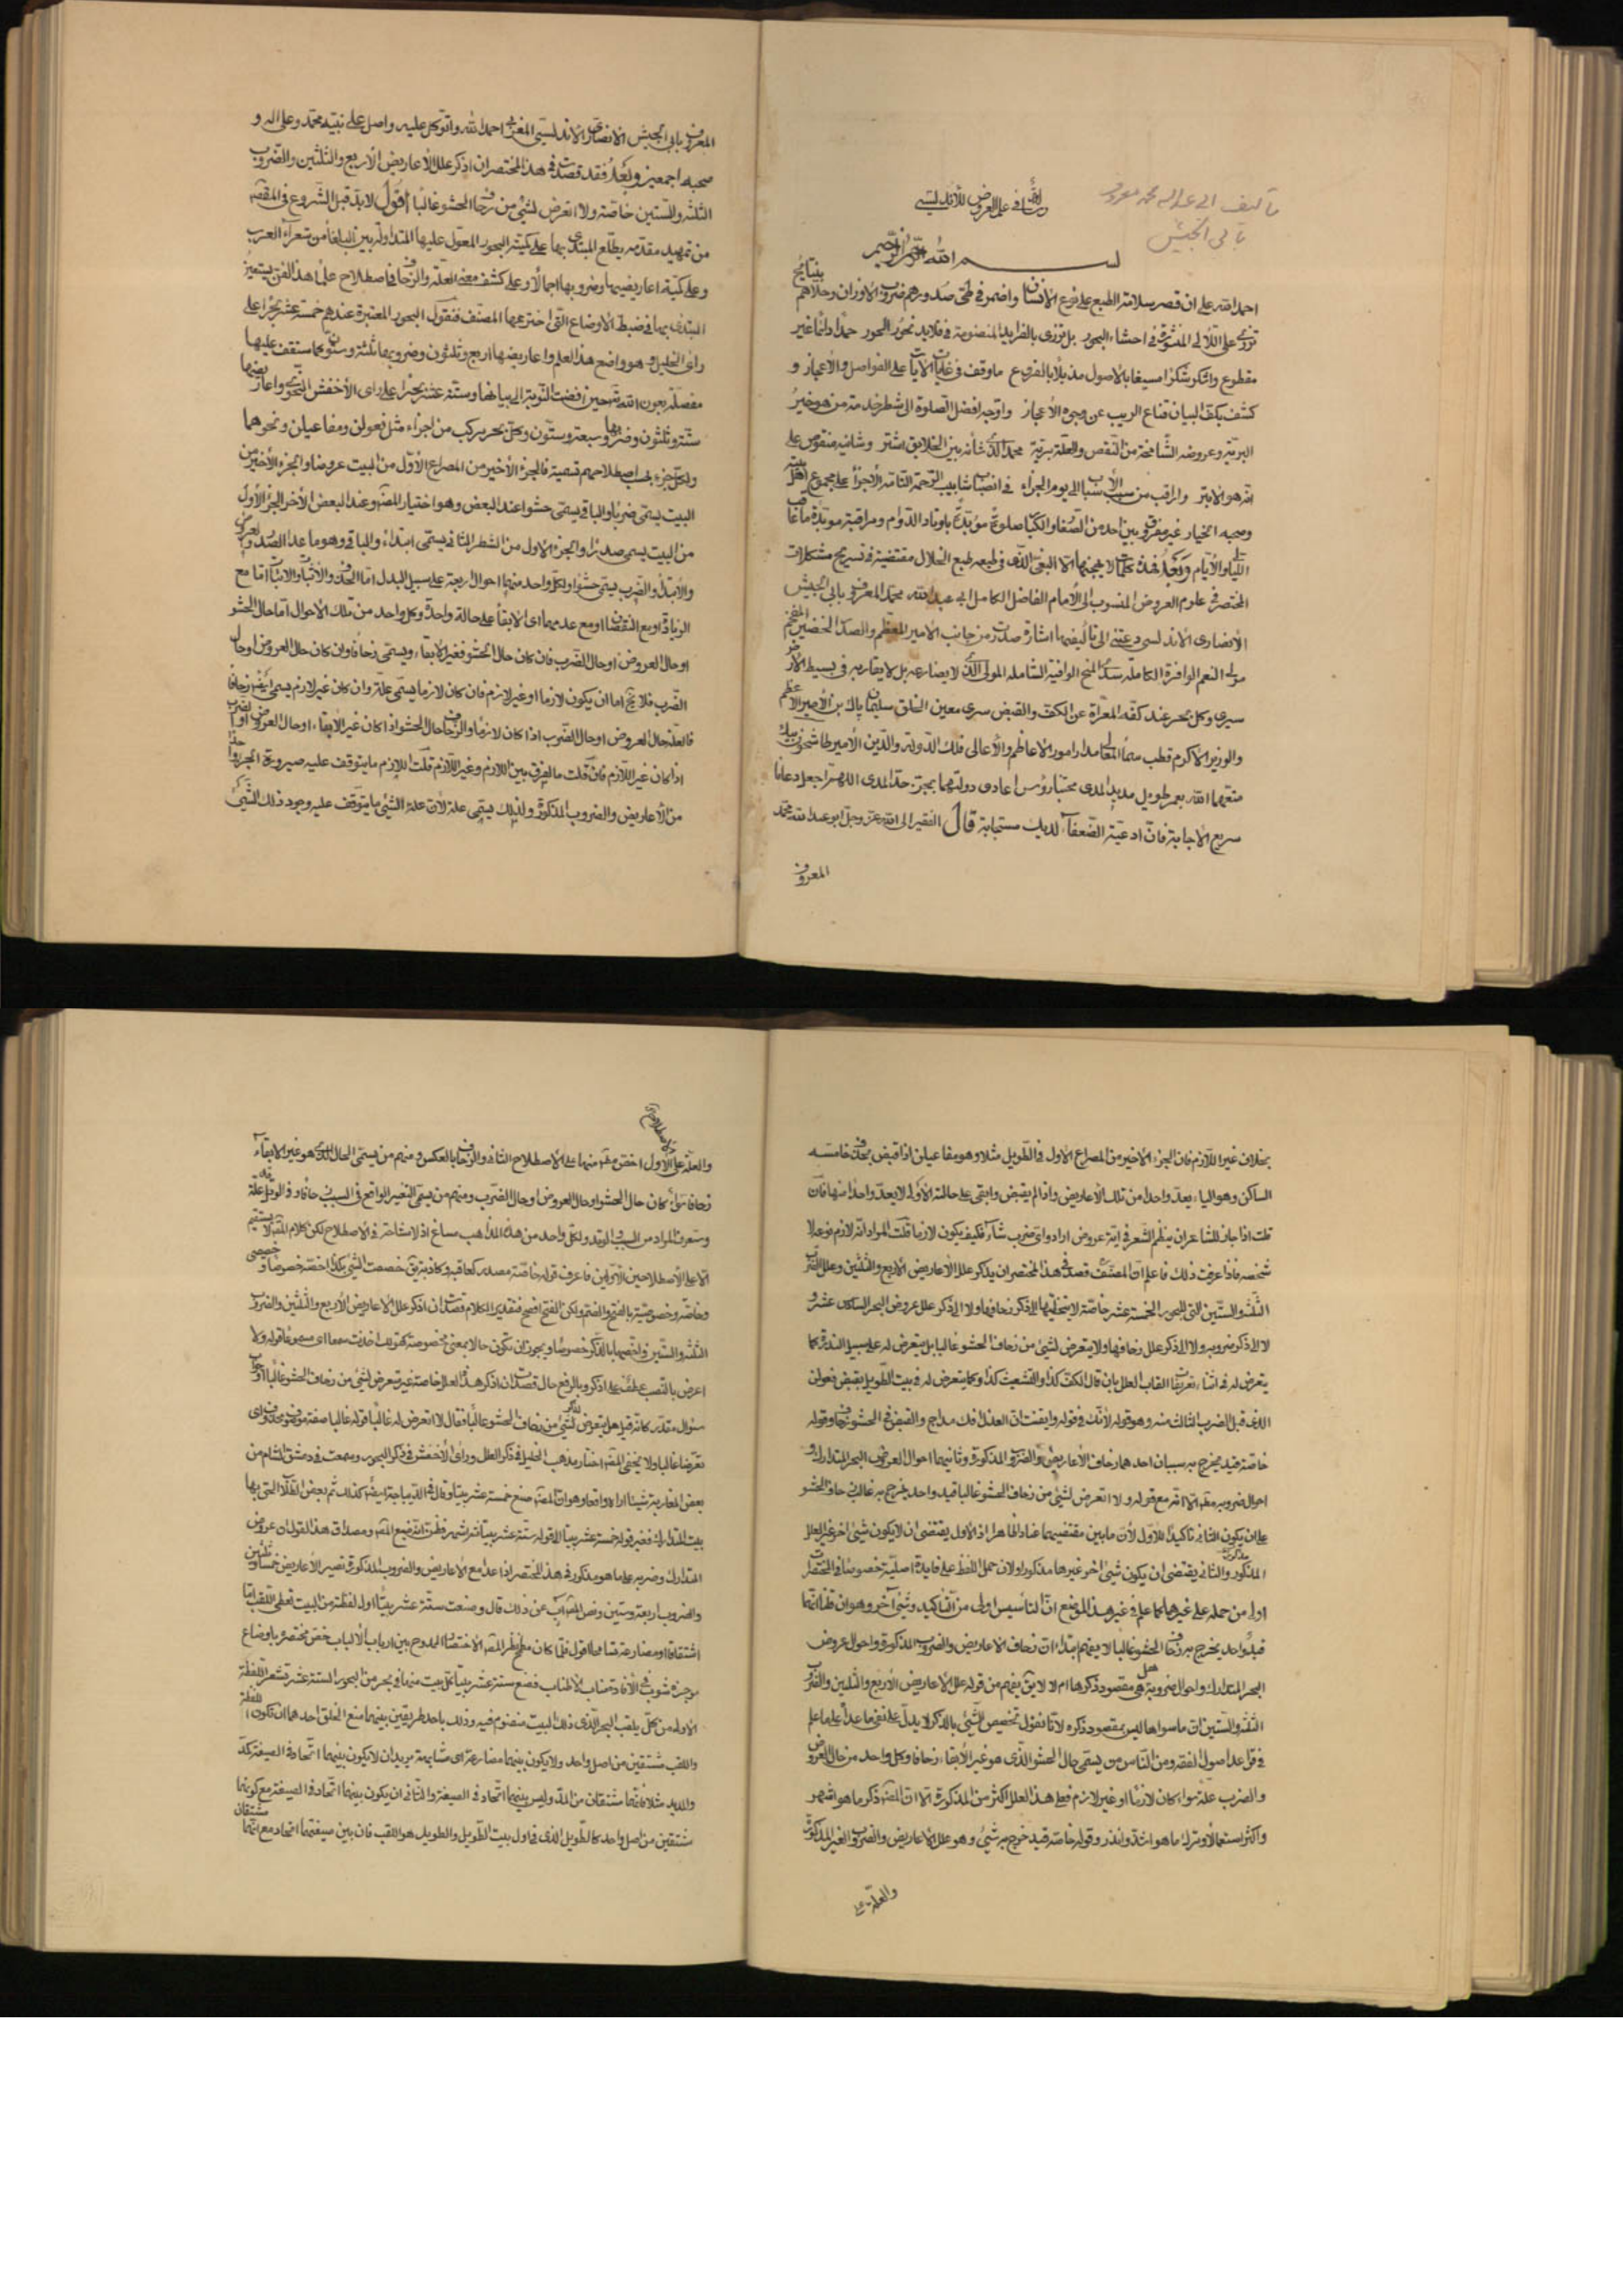 تأليف ابى عبد الله محمد معروف
بابى الجيش
فى علم العروض للأندلسى
بسم الله الرحمن الرحيم
احمد الله على ان قصر سلامة الطبع على نوع الانسان واضمر فى طى صدورهم ضروب الاوزان وحلاهم بنتايج
تزرى على اللآلى المنثورة فى احشاء البحور بل تزرى بالفرايد المنضومة فى قلايد نحور الحور حمدا دائما غير
مقطوع واشكر شكرا مسبغا بالاصول مذيلا بالفروع ما وقف فى غايات الايات على الفواصل والاعجاز و
كشف بكف البيان قناع الريب عن وجوه الاعجاز واتوجه افضل الصلوة الى شطر خدمة من هو خير
البرية وعروضه الشامخة من النقص والعلة برية محمد الذى شأنه بين الخلايق اشتر وشانيه منقوص على
انه هو الابتر واراقب من سبب الاسباب الى يوم الجزاء فى انصباب شابيب الرحمة التامة الاجزاء على مجموع اهل بيته
وصحبه الخيار غير مفروق بين احد من الصغار والكبار صلوة مؤبدة باوتاد الدوام ومراقبة موبدة ما تعاقب
الليالى والايام وبعد فهذه كلمات لا يهجنها الا البغى الذى فى طبعه طبع الخلال مقتضبة فى تسريح مشكلات
المختصر فى علوم العروض المنسوب الى الامام الفاضل الكامل ابى عبد الله محمد المعروف بابى الجيش
الانصارى الاندلسى دعتنى الى تأليفها اشارة صدرت من جانب الامير المعظم والصدر الخضير المفخم
مولى النعم الوافرة الكاملة سدى المنح الوافية الشاملة المولى الذى لا يضارعه بل لا يقاربه فى بسيط الارض
سرى وكل بحر عند كفه المعراة عن الكف والقبض سرى معين الخلق سليمان پاك بن الامير الاعظم
والوزير الاكرم قطب سماء المعالى مدار امور الاعاظم والاعالى فلك الدولة والدين الامير طاشخون بيك
متعهما الله بعمر طويل مديد المدى مجتبا رؤس اعادى دولتهما بجز حد المدى اللهم اجعل دعانا
سريع الاجابة فان ادعية الضعفاء لديك مستجابة قال الفقير الى الله عز وجل ابو عبد الله محمد
المعروف
المعروف بابى الجيش الانصارى الاندلسى المغربى احمد الله واتوكل عليه واصلى على نبيه محمد وعلى اله و
صحبه اجمعين وبعد فقد قصدت فى هذا المختصر ان اذكر علل الاعاريض الاربع والثلثين والضروب
الثلثة والستين خاصة ولا اتعرض لشئ من زحاف الحشو غالبا اقول لا بد قبل الشروع فى المقصد
من تمهيد مقدمة يطلع المبتدى بها على كمية البحور المعول عليها المتداولة بين البلغا من شعراء العرب
وعلى كمية اعاريضها وضروبها اجمالا وعلى كشف معنى العلة والزحاف فى اصطلاح علماء هذا الفن يستعين
المبتدى بها فى ضبط الاوضاع التى اخترعها المصنف فنقول البحور المعتبرة عندهم خمسة عشر بحرا على
راى الخليل وهو واضع هذا العلم واعاريضها اربع وثلثون وضروبها ثلثة وستون كما ستقف عليها
مفصلة بعون الله تعالى حين افضت النوبة الى بيانها وستة عشر بحرا على راى الاخفش النحوى واعاريضها
ستة وثلثون وضروبها سبعة وستون وكل بحر يركب من اجزاء مثل فعولن ومفاعيلن ونحوهما
ولكل جزء بحسب اصطلاحهم تسمية فالجزء الاخير من المصراع الاول من البيت عروضا والجزء الاخير من
البيت يسمى ضربا والباقى يسمى حشوا عند البعض وهو اختيار المصنف وعند البعض الاخر الجزء الاول
من البيت يسمى صدرا والجزء الاول من الشطر الثانى يسمى ابتداء والباقى وهو ما عدا الصدر والعروض
والابتداء والضرب يسمى حشوا ولكل واحد منها احوال اربعة على سبيل البدل اما الحذف والاثبات اما مع
الزيادة او مع النقصان او مع عدمهما اى الابقاء على حالة واحدة وكل واحد من تلك الاحوال اما حال الحشو
او حال العروض او حال الضرب فان كان حال الحشو فغير الابقاء ويسمى زحافا وان كان حال العروض او حال
الضرب فلا يخ اما ان يكون لازما او غير لازم فان كان لازما يسمى علة وان كان غير لازم يسمى ايضا زحافا
فالعلة حال العروض او حال الضرب اذا كان لازما والزحاف حال الحشو اذا كان غير الابقاء او حال العروض او الضرب
اذا كان غير اللازم فان قلت ما الفرق بين اللازم وغير اللازم قلت اللازم ما يتوقف عليه صيرورة الجزء واحدا
من الاعاريض والضروب المذكورة ولذلك يسمى علة لان علة الشئ ما يتوقف عليه وجود ذلك الشئ
بخلاف غير اللازم فان الجزء الاخير من المصراع الاول فى الطويل مثلا وهو مفاعيلن اذا قبض بحذف خامسه
الساكن وهو الياء يعد واحدا من تلك الاعاريض واذا لم يقبض وابقى على حالته الاولى لا يعد واحدا منها فان
قلت اذا جاز للشاعر ان ينظم الشعر فى اية عروض اراد واى ضرب شاء فكيف يكون لازما قلت المراد انه لازم نوعه لا
شخصه فاذا عرفت ذلك فاعلم ان المصنف قصد فى هذا المختصر ان يذكر علل الاعاريض الاربع والثلثين وعلل الضروب
الثلثة والستين التى للبحور الخمسة عشر خاصة لا يتخطيها الى ذكر زحافها ولا الى ذكر علل عروض البحر السادس عشر و
لا الى ذكر ضروبه ولا الى ذكر علل زحافها ولا يتعرض لشئ من زحاف الحشو غالبا بل يتعرض له على سبيل الندرة كما
يتعرض له فى اثناء تعريف القاب العلل بان قال الكف كذا والتشعيث كذا وكما يتعرض له فى بيت الطويل بقبض فعولن
الذى قبل الضرب الثالث منه وهو قوله لأنك وقوله وايقنت ان العذل افك مداج والقبض فى الحشو زحاف وقوله
خاصة قيد يخرج به سببان احدهما زحاف الاعاريض والضروب المذكورة وثانيهما احوال العروض البحر المتدارك و
احوال ضروبه مطلقا الا انه مع قوله ولا اتعرض لشئ من زحاف الحشو غالبا قيد واحد يخرج به غالب زحاف الحشو
على ان يكون الثانى تأكيدا للاول لان ما بين مقتضيهما عناد الظاهر اذ الاول يقتضى ان لا يكون شئ اخر غير العلل
المذكور والثانى يقتضى ان يكون شئ اخر غيرها مذكورا ولان حمل اللفظ على فايدة اصلية خصوصا فى المختصرات
اولى من حمله على غيرها كما علم فى غير هذا الموضع ان التأسيس اولى من التأكيد وشئ آخر وهو ان قلنا انهما
قيد واحد يخرج به زحاف الحشو غالبا لا يفهم ابتداء ان زحاف الاعاريض والضروب المذكورة واحوال عروض
البحر المتدارك واحوال ضروبه هل هى مقصود ذكرها ام لا لا يق يفهم من قوله علل الاعاريض الاربع والثلثين والضروب
الثلثة والستين ان ما سواها ليس بمقصود ذكره لانا نقول تخصيص الشئ بالذكر لا يدل على نفى ما عداه على ما علم
فى قواعد اصول الفقه ومن الناس من يسمى حال الحشو الذى هو غير الابقاء زحافا وكل واحد من حال العروض
والضرب علة سواء كان لازما او غير لازم فعلى هذا العلل اكثر من المذكورة الا ان المصنف ذكر ما هو اشهر
واكثر استعمالا وترك ما هو اشذ واندر وقوله خاصة قيد خرج به شئ وهو علل الاعاريض والضروب الغير المذكورة
والعلة على
والعلة على الاول اخص مطلقا منها على الاصطلاح الثانى والزحاف بالعكس ومنهم من يسمى الحال الذى هو غير الابقاء
زحافا سواء كان حال الحشو او حال العروض او حال الضرب ومنهم من يسمى التغيير الواقع فى السبب زحافا وفى الوتد علة
وستعرف المراد من السبب والوتد ولكل واحد من هذه المذاهب مساغ اذ لا مشاحة فى الاصطلاح لكن كلام المصنف لا يستقيم
الا على الاصطلاحين الاولين فاعرف قوله خاصة مصدر كعاقبة وكاذبة يق خصصت الشئ بكذا اخصه خصوصا وخصيصى
وخاصة وخصوصية بالفتح والضم ولكن الفتح افصح فتقدير الكلام قصدت ان اذكر علل الاعاريض الاربع والثلثين والضروب
الثلثة والستين واخصها بالذكر خصوصا ويجوز ان تكون حالا بمعنى مخصوصة كقولك اخذت سمعا اى مسموعا قوله ولا
اعرض بالنصب عطف على اذكر وبالرفع حال قصدت ان اذكر هذه العلل خاصة غير متعرض لشئ من زحاف الحشو غالبا او جواب
سؤال مقدر كانه قيل هل يتعرض لشئ من زحاف الحشو غالبا فقال لا اتعرض له غالبا قوله غالبا صفة موصوف محذوف اى
تعرضا غالبا ولا يخفى المصنف اختار مذهب الخليل فى ذكر العلل وراى الاخفش فى ذكر البحور وسمعت فى دمشق الشام من
بعض المغاربة شيئا اراه واقعا وهو ان المصنف صنع خمسة عشر بيتا وقال فى الديباجة ايضا كذلك ثم بعض الطلاب الحق بها
بيت المتدارك فغير قوله خمسة عشر بيتا الى قوله ستة عشر بيتا
المتدارك وضربه على ما هو مذكور فى هذا المختصر اذا عد مع الاعاريض والضروب المذكورة تصير الاعاريض خمسا وثلثين
والضروب اربعة وستين قال وصنعت ستة عشر بيتا اول لفظة من البيت تعطى اللقب اما
اشتقاقا او مضارعة
الاولى من كل بلقب البحر الذى ذلك البيت منضوم فيه وذلك باحد طريقين بينهما منع الخلو احدهما ان تكون اللفظة
واللقب مشتقين من اصل واحد ولا يكون بينهما مضارعة اى مشابهة يريد ان لا يكون بينهما اتحاد فى الصيغة كمد
والمديد مثلا فانهما مشتقان من المد وليس بينهما اتحاد فى الصيغة والثانى ان يكون بينهما اتحاد فى الصيغة مع كونهما
مشتقين من اصل واحد كالطويل الذى فى اول بيت الطويل والطويل هو اللقب فان بين صيغتهما اتحاد مع انهما مشتقان